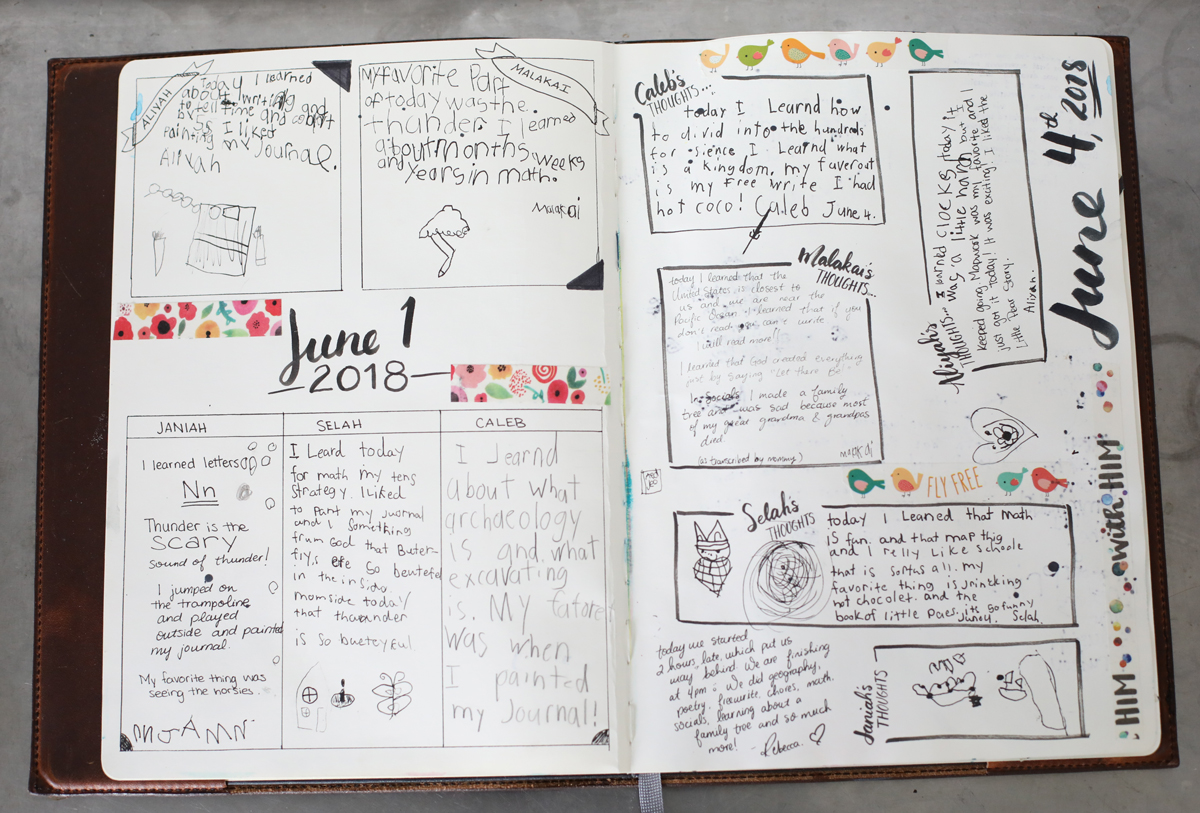 ALIYAH
Today I learned
about writing and
to tell time and count
by 5s I liked
Painting my Journal.
Aliyah
MALAKAI
My favorite Part
of today was the
thunder. I learned
about months, weeks
and years in math.
Malakai
June 1
2018
JANIAH
I learned letters
Nn
Thunder is the
scary
sound of thunder!
I jumped on
the trampoline
and played
outside and painted
my journal.
My favorite thing was
seeing the horsies.
SELAH
I Leard today
for math my tens
Strategy. I liked
to Part my Juornal
and I something
frum God that Buter-
fly,s are so beutefel
in the insido
momside today
that thounder
is so bueteyful
CALEB
I learnd
about what
archaeology
is and what
excavating
is. My fatoret
was when
I painted
my Journal!
Caleb's
THOUGHTS...
today I Learnd how
to divid into the hundreds
for sience I Learnd what
is a kingdom, my faverout
is my free write I had
hot coco! Caleb June 4.
Malakai's
THOUGHTS...
today I learned that the
United States is closest to
us and we are near the
Pacific Ocean. I learned that if you
don't read you can't write
I will read more!
I learned that God created everything
just by saying "Let there Be!"
In socials I made a family
tree and was sad because most
of my great grandma & grandpas
died.
(as transcribed by mommy)
Malakai
Aliyah's
THOUGHTS...
I learned clocks today it
was a little hard but I
keeped going Mapwork was my favorite and I
just got it today! It was exciting! I liked the
little Pear Story.
Aliyah.
June 4th, 2018
FLY FREE
Selah's
THOUGHTS
today I Learned that math
is fun. and that map thig
and I relly Like schoole
that is sorths all. my
favorite thing is jrintking
hot chocolet. and the
book of little Paes. its so funny
June 4. Selah.
today we started
2 hours late, which put us
way behind. We are finishing
at 4pm! We did geography,
poetry, freewrite, chores, math,
socials, learning about a
family tree and so much
more! - Rebecca
Janiah's
THOUGHTS
HIM with HIM